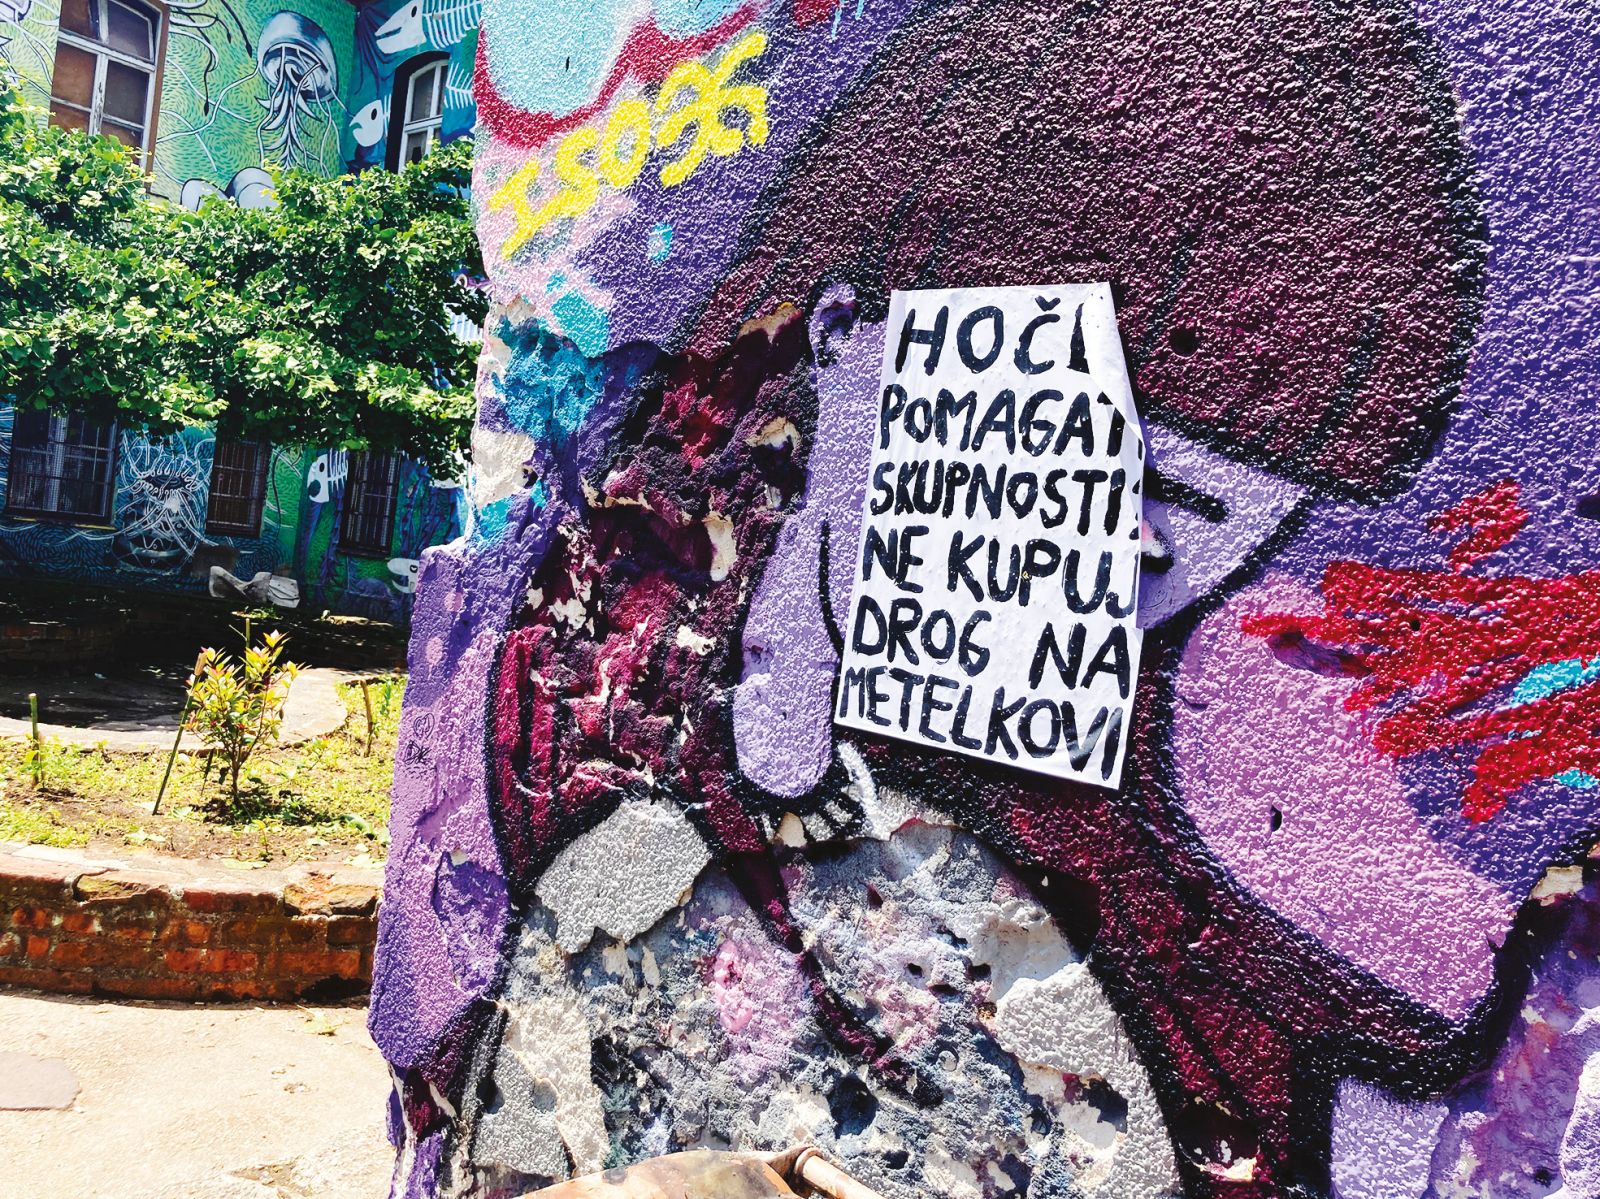 HOČI
POMAGATI
SKUPNOSTI?
NE KUPUJ
DROG NA
METELKOVI